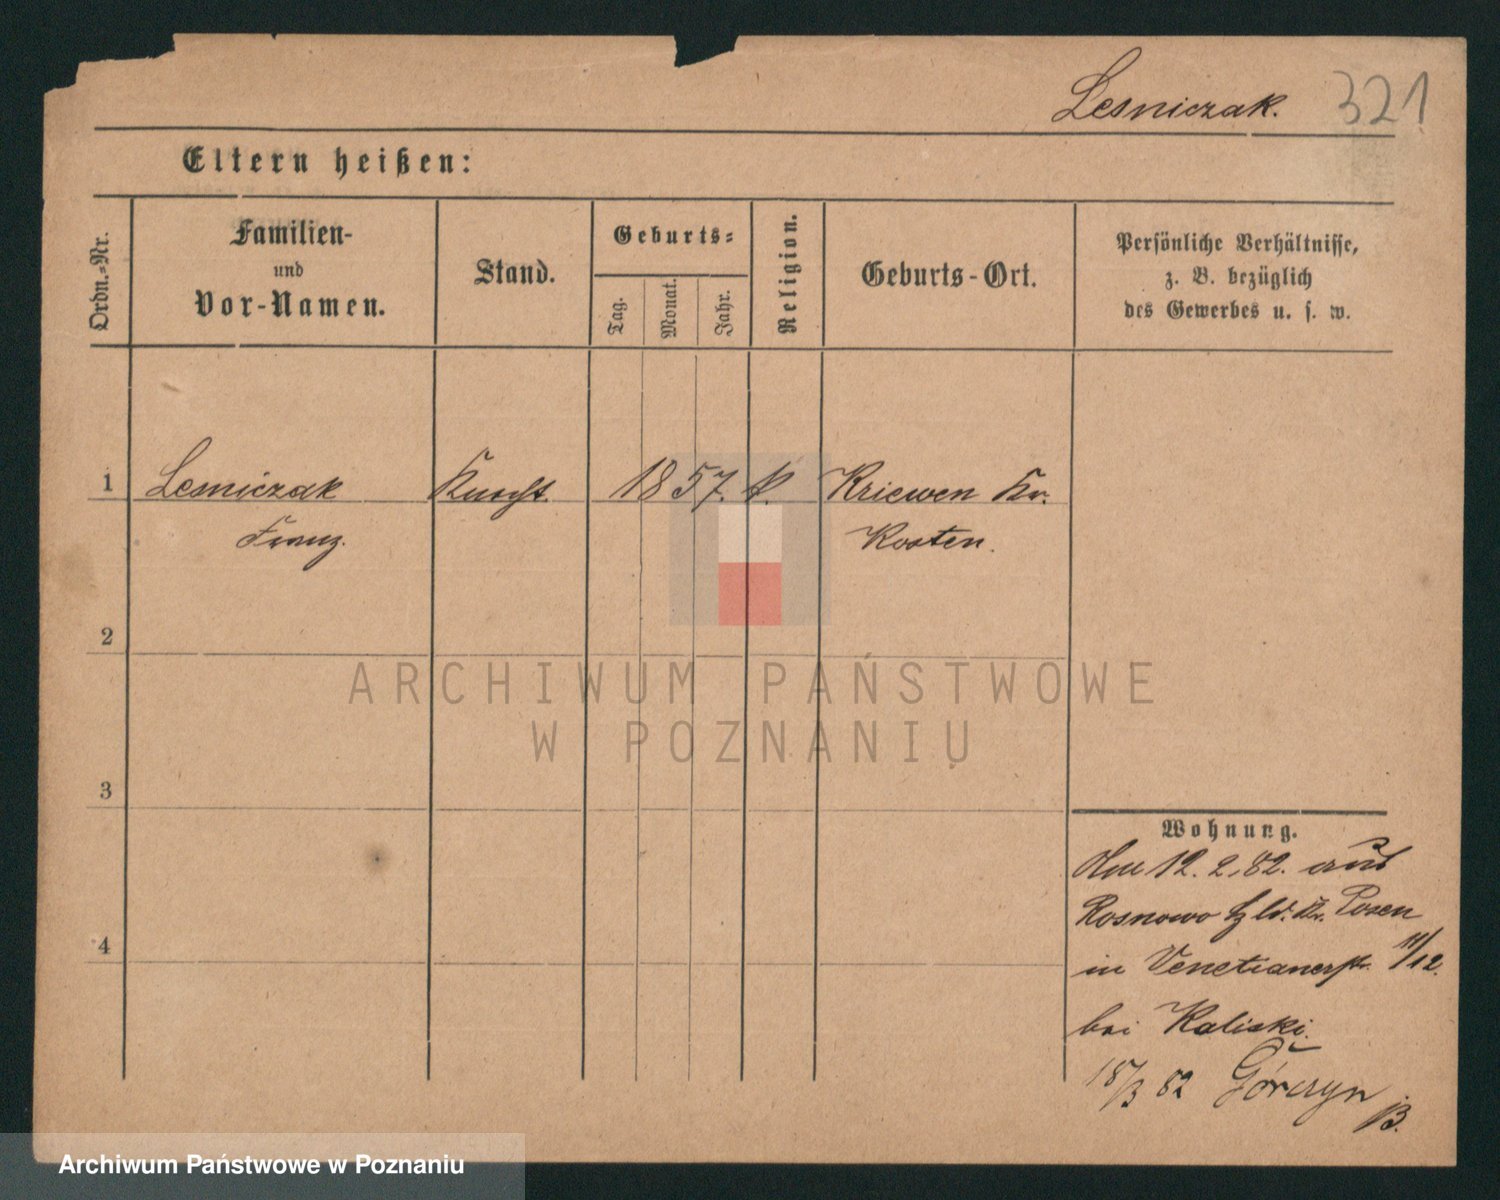 Lesniczak.
321
Eltern heißen:
Ordn.-Nr.
Familien-
und
Vor-Namen.
Stand.
Geburts-
Tag.
Monat.
Jahr.
Religion.
Geburts-Ort.
Persönliche Verhältnisse,
z. B. bezüglich
des Gewerbes u. s. w.
1
Lesniczak
Franz.
Knecht.
1857.
k.
Kriewen Kr.
Kosten.
2
3
4
Wohnung.
Am 12. 2. 82. aus
Rosnowo Kr. Posen
in Venetianerstr. 11/12.
bei Kaliski.
18/3 82 Górczyn
B.
ARCHIWUM PAŃSTWOWE
W POZNANIU
Archiwum Państwowe w Poznaniu